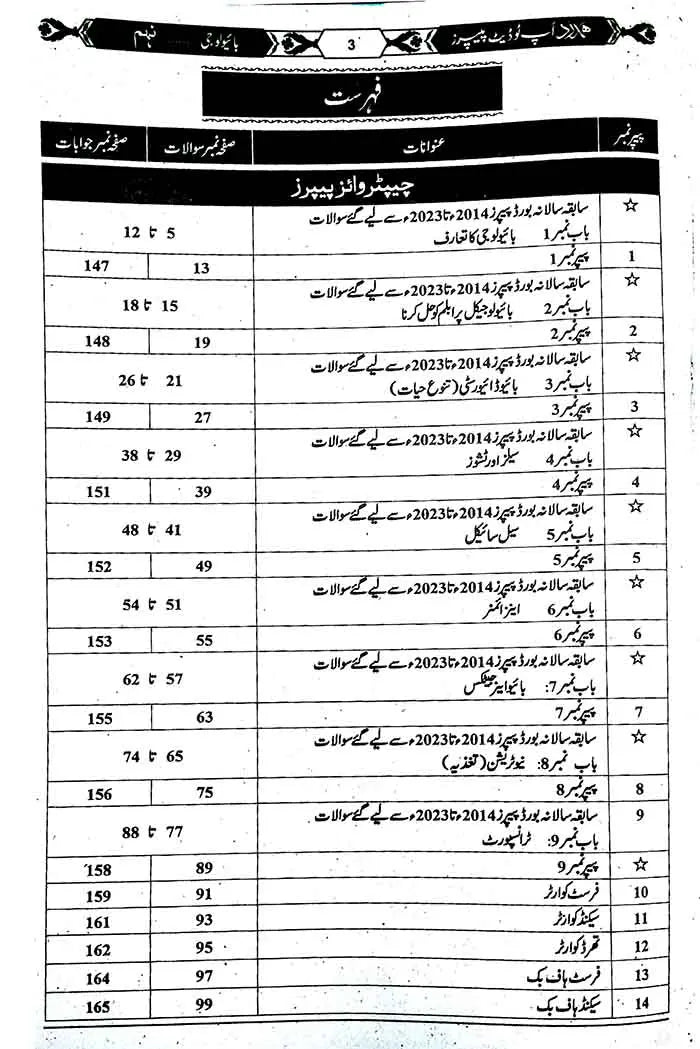 ہمدرد اَپ ٹوڈیٹ پیپرز 3 بائیولوجی ...... نہم
فہرست
پیپر نمبر عنوانات صفحہ نمبر سوالات صفحہ نمبر جوابات
چیپٹر وائز پیپرز
☆ سابقہ سالانہ بورڈ پیپرز 2014ء تا 2023ء سے لیے گئے سوالات
باب نمبر 1 بائیولوجی کا تعارف 5 تا 12
1 پیپر نمبر 1 13 147
☆ سابقہ سالانہ بورڈ پیپرز 2014ء تا 2023ء سے لیے گئے سوالات
باب نمبر 2 بائیولوجیکل پرابلم کو حل کرنا 15 تا 18
2 پیپر نمبر 2 19 148
☆ سابقہ سالانہ بورڈ پیپرز 2014ء تا 2023ء سے لیے گئے سوالات
باب نمبر 3 بائیوڈائیورسٹی (تنوع حیات) 21 تا 26
3 پیپر نمبر 3 27 149
☆ سابقہ سالانہ بورڈ پیپرز 2014ء تا 2023ء سے لیے گئے سوالات
باب نمبر 4 سیلز اور ٹشوز 29 تا 38
4 پیپر نمبر 4 39 151
☆ سابقہ سالانہ بورڈ پیپرز 2014ء تا 2023ء سے لیے گئے سوالات
باب نمبر 5 سیل سائیکل 41 تا 48
5 پیپر نمبر 5 49 152
☆ سابقہ سالانہ بورڈ پیپرز 2014ء تا 2023ء سے لیے گئے سوالات
باب نمبر 6 اینزائمز 51 تا 54
6 پیپر نمبر 6 55 153
☆ سابقہ سالانہ بورڈ پیپرز 2014ء تا 2023ء سے لیے گئے سوالات
باب نمبر 7: بائیوانرجیٹکس 57 تا 62
7 پیپر نمبر 7 63 155
☆ سابقہ سالانہ بورڈ پیپرز 2014ء تا 2023ء سے لیے گئے سوالات
باب نمبر 8: نیوٹریشن (تغذیہ) 65 تا 74
8 پیپر نمبر 8 75 156
9 سابقہ سالانہ بورڈ پیپرز 2014ء تا 2023ء سے لیے گئے سوالات
باب نمبر 9: ٹرانسپورٹ 77 تا 88
☆ پیپر نمبر 9 89 158
10 فرسٹ کوارٹر 91 159
11 سیکنڈ کوارٹر 93 161
12 تھرڈ کوارٹر 95 162
13 فرسٹ ہاف بک 97 164
14 سیکنڈ ہاف بک 99 165